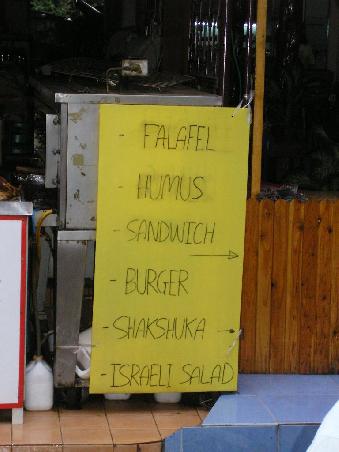 - FALAFEL
- HUMUS
- SANDWICH
- BURGER
- SHAKSHUKA
- ISRAELI SALAD